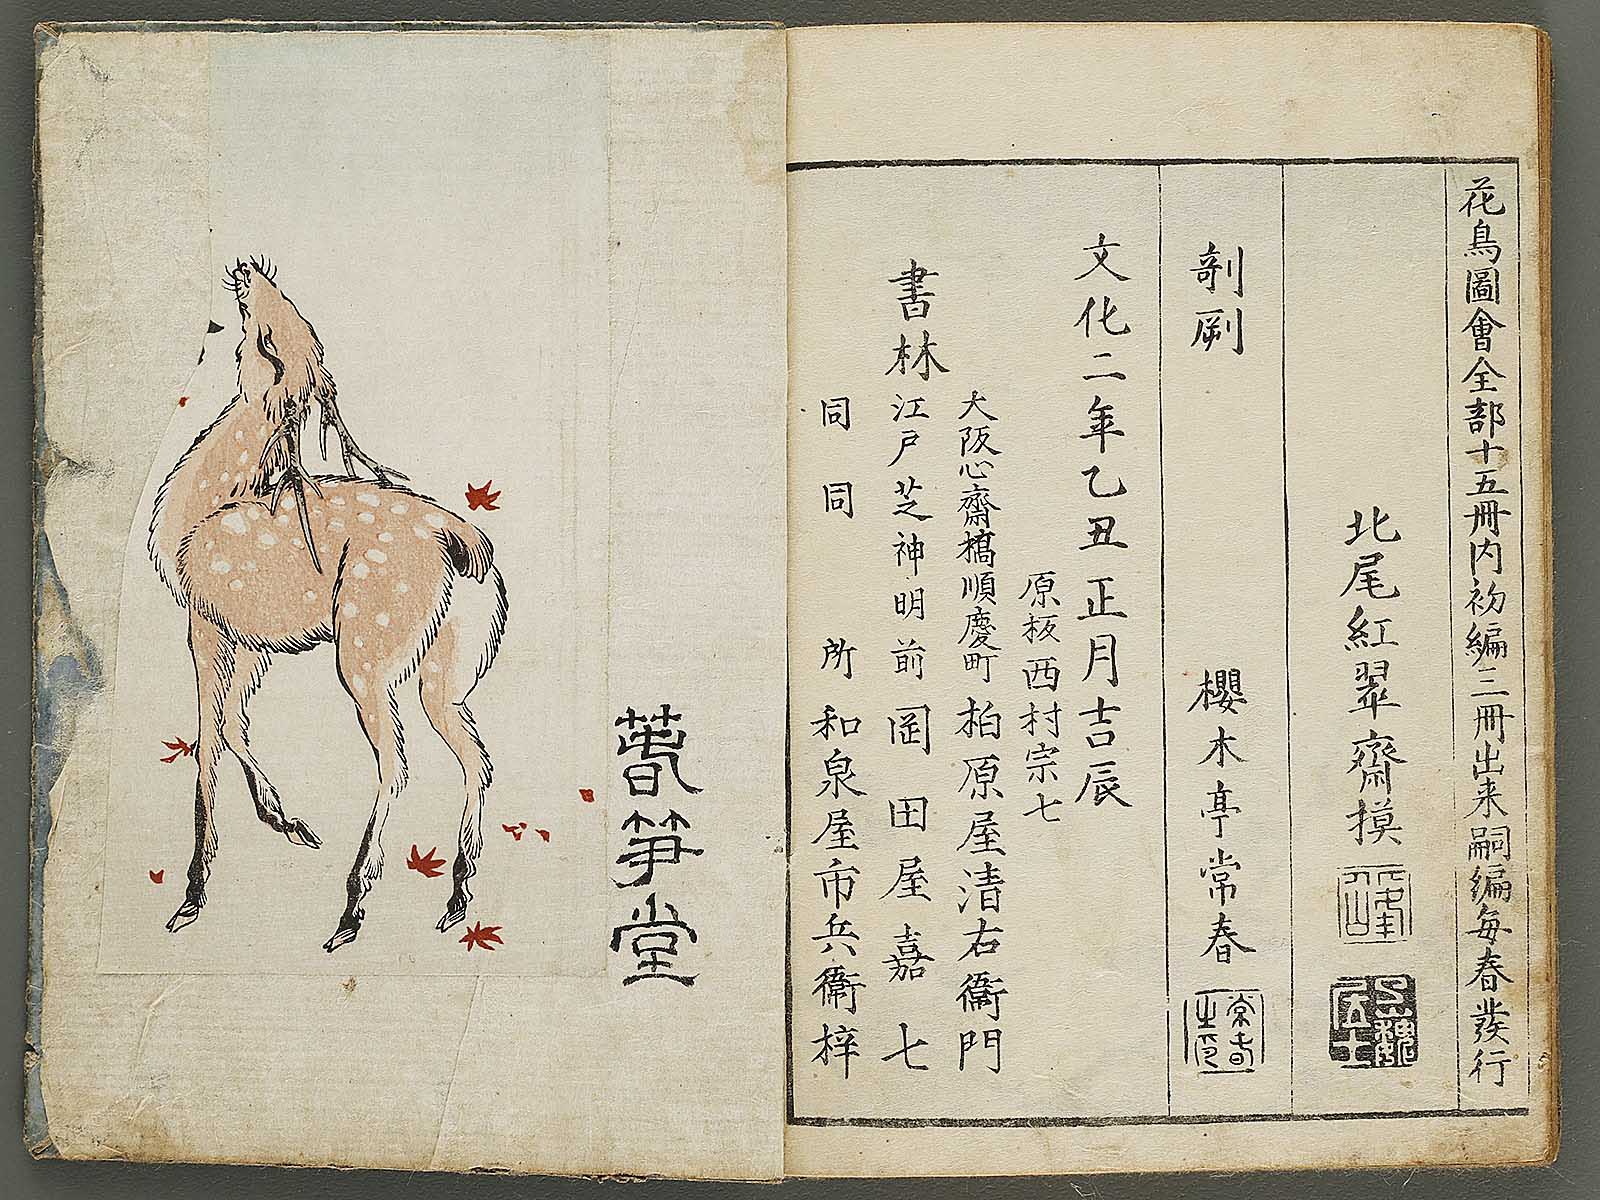 花鳥圖會全部十五冊内初編三冊出来嗣編毎春發行
北尾紅翠齋摸
剞劂
櫻木亭常春
文化二年乙丑正月吉辰
原板西村宗七
大阪心齋橋順慶町柏原屋清右衞門
書林江戸芝神明前岡田屋嘉七
同同所和泉屋市兵衞梓